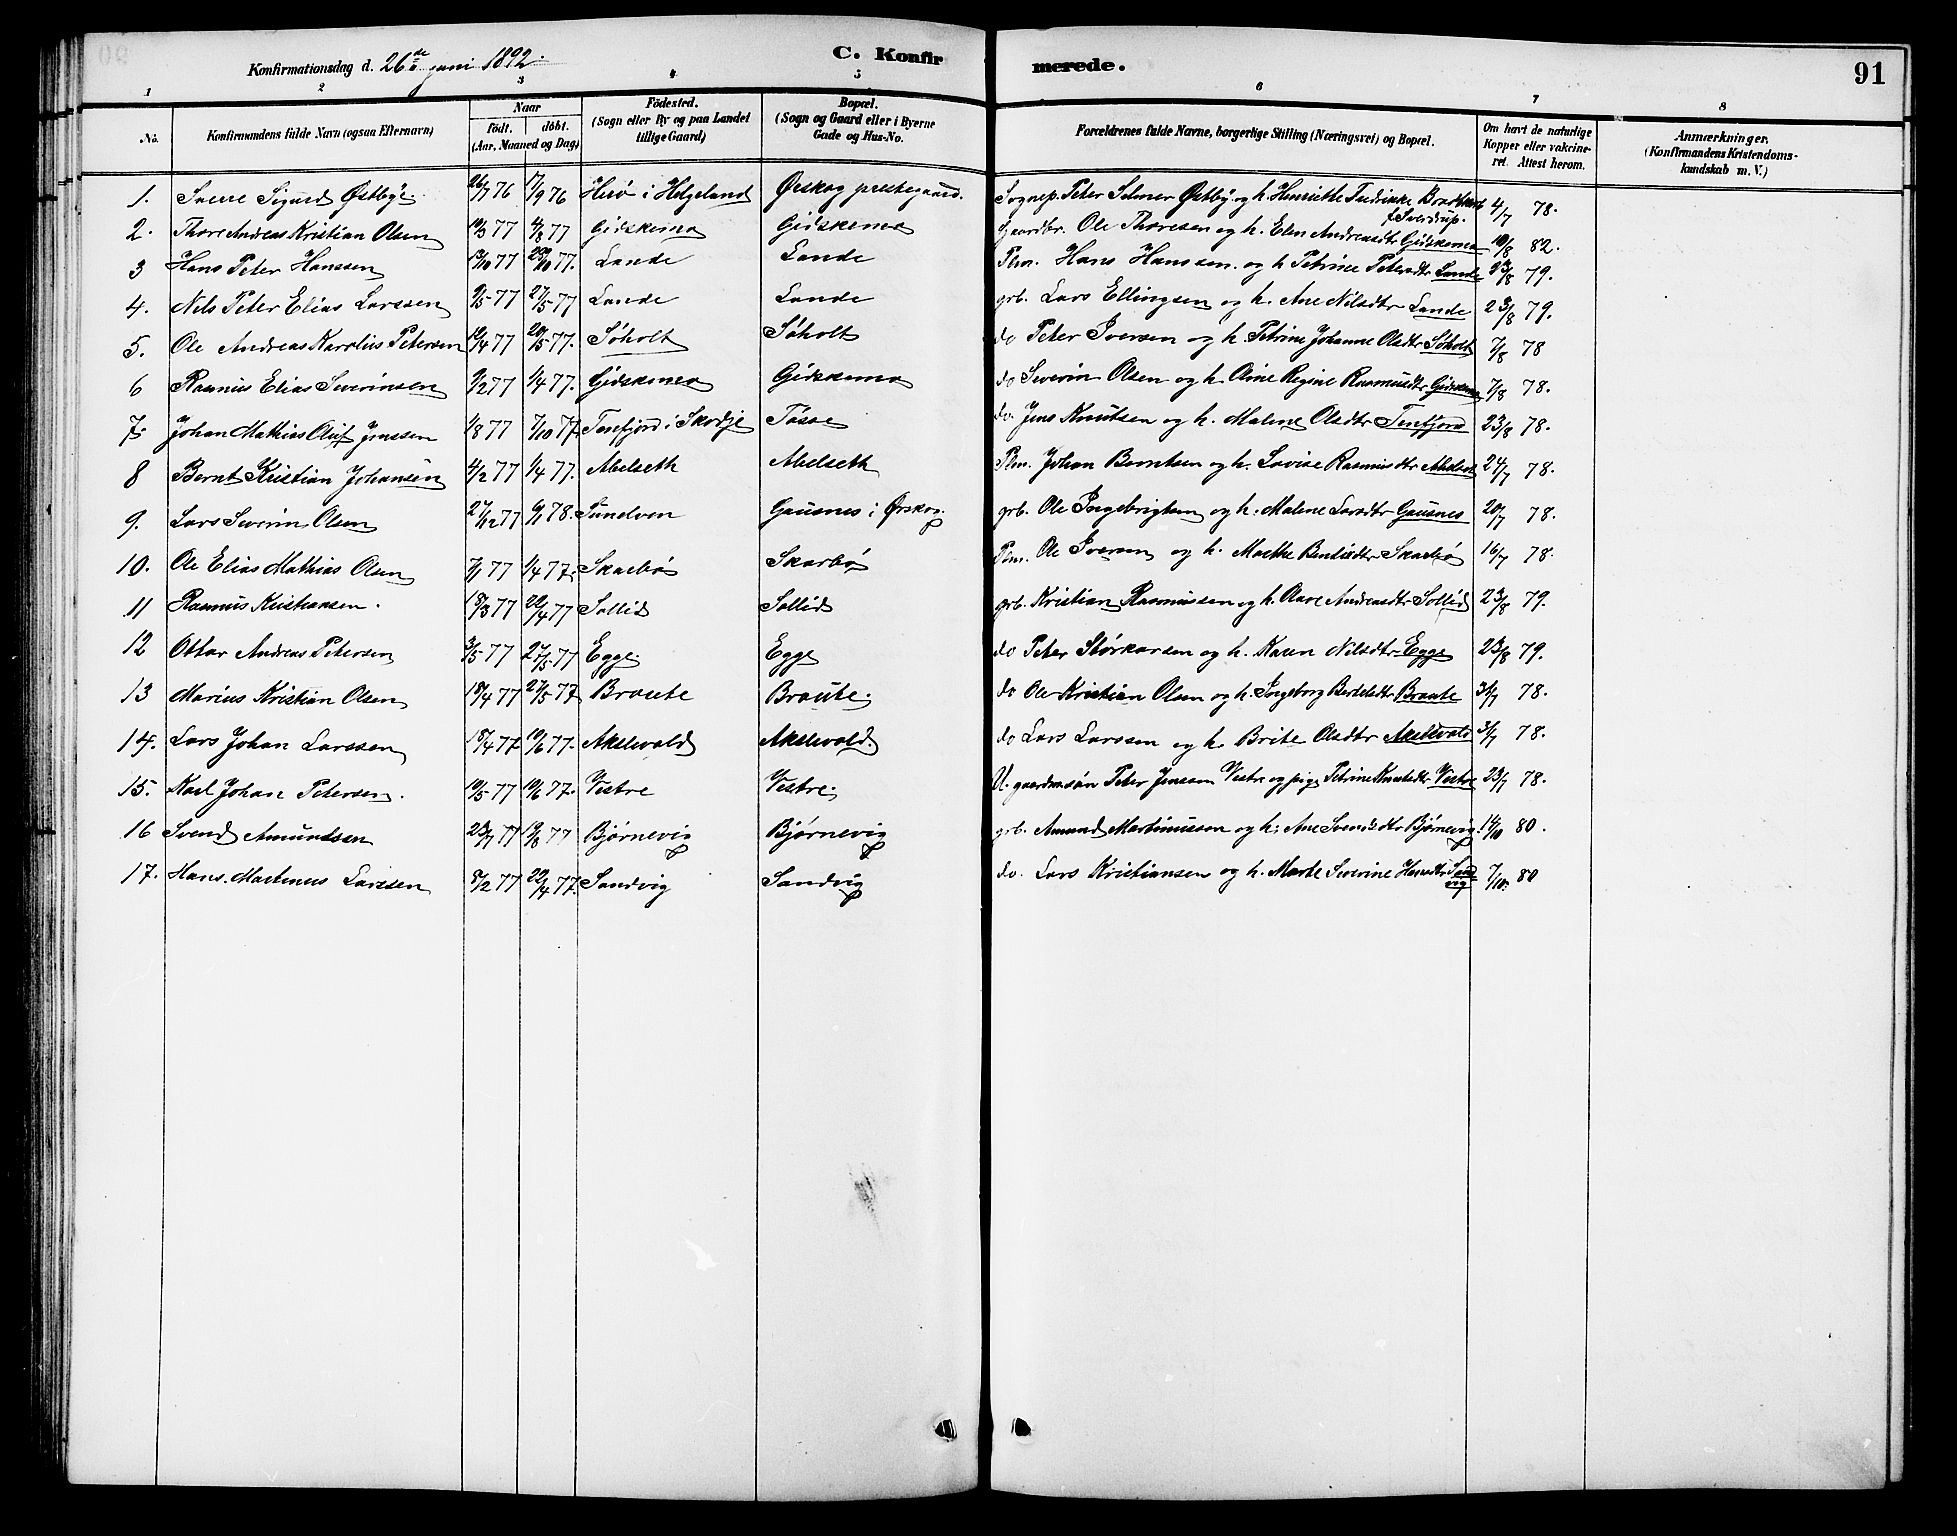 Konfirmationsdag d. 26de juni 1892. C. Konfirmerede. 91
1 2 3 4 5 6 7 8
No. Konfirmandens fulde Navn (ogsaa Efternavn) Naar födt. döbt. (Aar, Maaned og Dag) Födested. (Sogn eller By og paa Landet tillige Gaard) Bopæl. (Sogn og Gaard eller i Byerne Gade og Hus-No. Forældrenes fulde Navne, borgerlige Stilling (Næringsvei) og Bopæl. Om havt de naturlige Kopper eller vakcineret. Attest herom. Anmærkninger. (Konfirmandens Kristendomskundskab m. V.)
1. Sverre Sigurd Østbye 26/7 76 17/9 76 Herø i Helgeland Ørskog prestegaard. Sognep. Peter Selmer Østby og h. Henriethe Fredrikke f. Sverdrup. 4/7 78.
2. Thore Andreas Kristian Olsen 10/3 77 4/8 77 Gidskemo Gidskemo Gaardbr. Ole Thoresen og h. Elen Andreasdtr Gidskemo 10/8 82.
3 Hans Peter Hanssen 13/10 77 29/10 77. Lande Lande Plm. Hans Hanssen og h Petrine Petersdtr Lande 23/8 79.
4. Nils Peter Elias Larssen 9/5 77 27/5 77 Lande Lande grb. Lars Ellingsen og h. Ane Nilsdtr Lande 23/8 79.
5. Ole Andreas Karolius Petersen 12/4 77 20/5 77. Søholt Søholt do Peter Iversen og h. Petrine Johanne Olsdtr Søholt 7/8 78
6 Rasmus Elias Severinsen 9/2 77 1/4 77. Gidskemo Gidskemo do Severin Olsen og h. Regine Rasmusdtr Gidskemo 7/8 78.
7. Johan Mathias Oluf Jenssen 1/8 77 7/10 77. Tenfjord i Skodje Tøsse do. Jens Knutsen og h. Malene Olsdtr Tenfjord 23/8 78.
8 Bernt Kristian Johansen 4/2 77 1/4 77. Abelseth Abelseth Plm. Johan Berntsen og h. Lovise Rasmusdtr Abelset 24/7 78.
9. Lars Severin Olsen 27/12 77 6/1 78. Sunelven Gausnes i Ørskog. grb. Ole Ingebrigtsen og h. Malene Larsdtr Gausnes 20/7 78.
10. Ole Elias Mathias Olsen 7/1 77 1/4 77. Skarbø Skarbø Plm. Ole Iversen og h. Marthe Skarbø 16/7 78.
11 Rasmus Kristiansen. 18/3 77 22/4 77 Sollid Sollid grb. Kristian Rasmussen og h. Andreasdtr Sollid 23/8 79.
12 Ottar Andreas Petersen 3/5 77 27/5 77 Egge. Egge do Peter Størkersen og h. Karen Nilsdtr Egge 23/8 79.
13 Marius Kristian Olsen 18/4 77 27/5 77. Braute Braute. do Ole Kristian Olsen og h. Ingeborg Bertelsdtr Braute 31/7 78.
14. Lars Johan Larssen 18/4 77 10/6 77. Akslevold Akslevold. do Lars Larssen og h. Brite Olsdtr Akslevold 31/7 78.
15. Karl Johan Petersen. 10/5 77 10/6 77. Vestre Vestre. U. gaardmsøn Peter Jenssen Vestre og pige Petrine Knutsdtr Vestre 23/7 78.
16 Svend Amundsen 23/7 77 19/8 77 Bjørnevig Bjørnevig grb. Amund Martinussen og h. Ane Svendsdtr Bjørnevig. 14/10 80.
17. Hans Martinus Larssen 8/2 77 22/4 77. Sandvig Sandvig do. Lars Kristiansen og h. Marte Severine Hansdtr Sandvig 7/10. 80